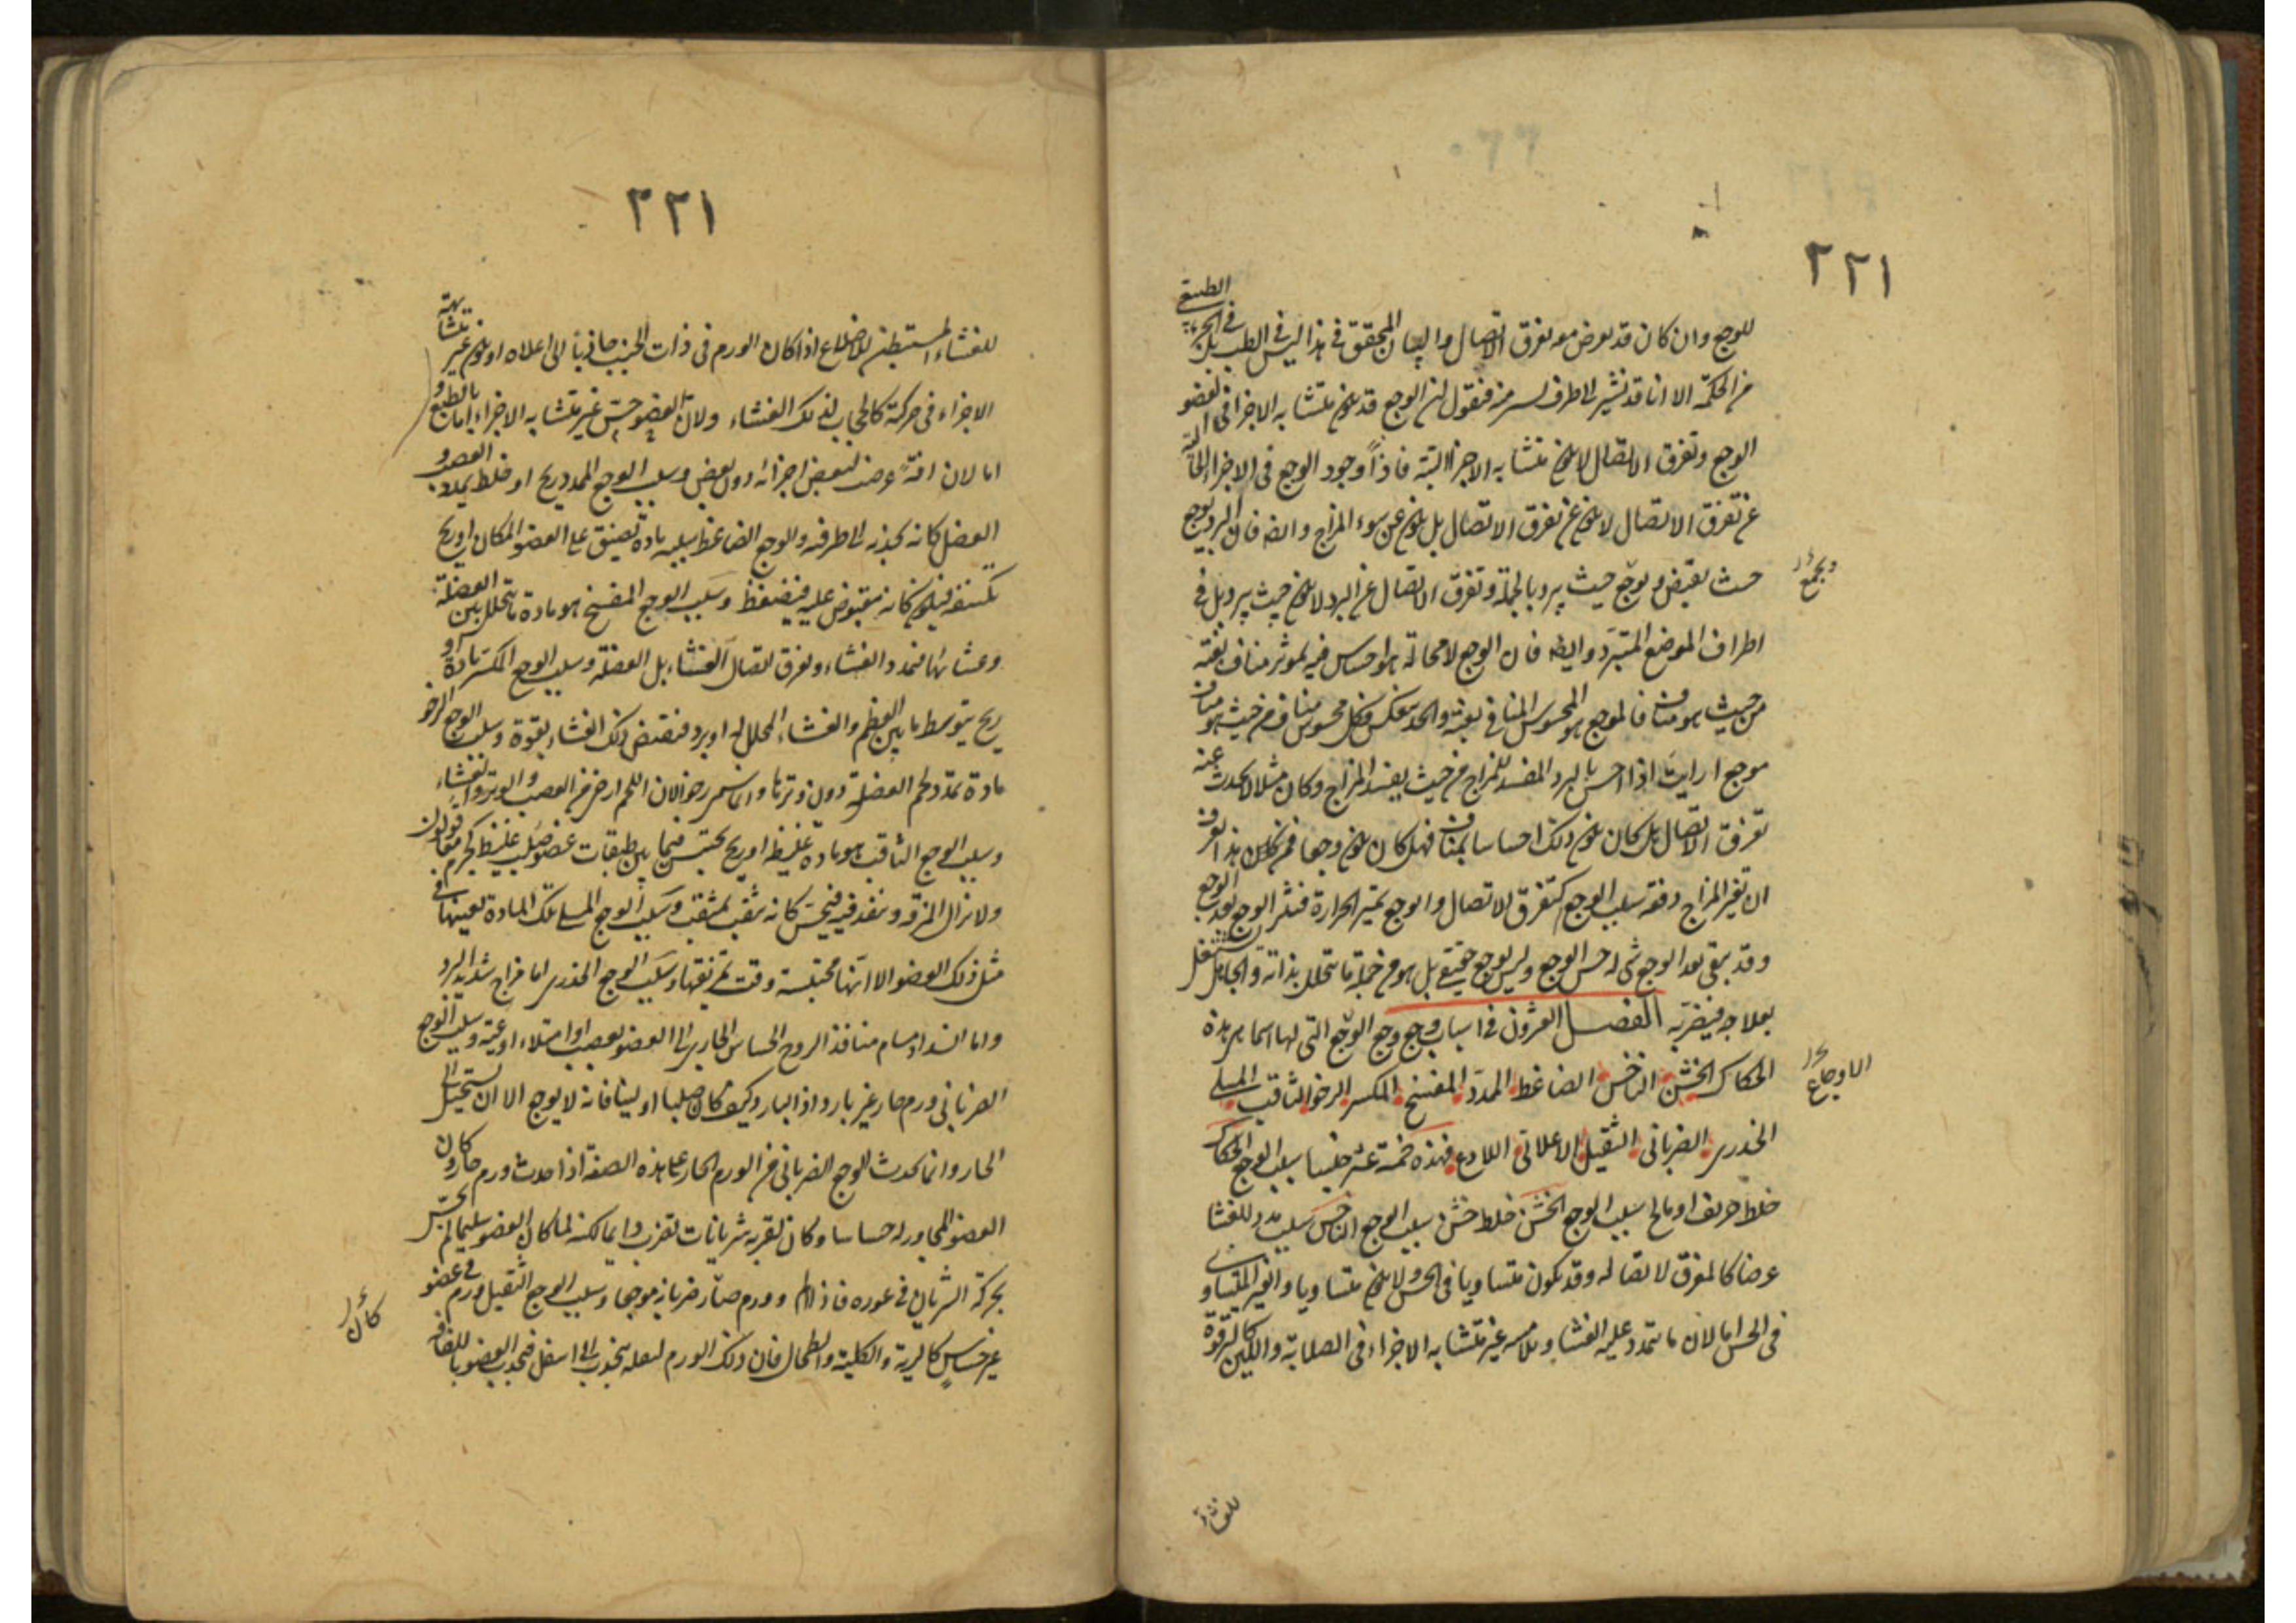 ٢٢١
للوجع وان كان قد يعرض معه تفرق الاتصال والبيان المحقق فى هذا ليس فى الطب بل فى الجزء الطبيعى
من الحكمة الا انا قد نشير الى طرف يسير منه فنقول ان الوجع قد يكون متشابه الاجزا فى العضو
الوجع وتفرق الاتصال لا يكون متشابه الاجزا البتة فاذاً وجود الوجع فى الاجزاء الخالية
عن تفرق الاتصال لا يكون عن تفرق الاتصال بل يكون عن سوء المزاج وايضا فان البرد يوجع
حيث يقبض ويوجع حيث يبرد بالجملة وتفرق الاتصال عن البرد لا يكون حيث يبرد بل فى
ويجمع
اطراف الموضع المتبرد وايضا فان الوجع لا محالة هو احساس فيه لموثر مناف بغتة
من حيث هو مناف فالموجع هو المحسوس المنافى بغتة والحد ينعكس فكل محسوس مناف من حيث هو مناف
موجع ارايت اذا احس بالبرد المفسد للمزاج من حيث يفسد المزاج وكان مثلا لا يحدث عنه
تفرق الاتصال هل كان يكون ذلك احساسا بمناف فهل كان يكون وجعا فمن هذا تعرف
ان تغير المزاج دفعة سبب الوجع كتفرق الاتصال والوجع يثير الحرارة فيثير الوجع بعد الوجع
وقد يبقى بعد الوجع شى له حس الوجع وليس بوجع حقيقى بل هو من جملة ما يتحلل بذاته والجاهل يشتغل
بعلاجه فيضر به الفصل العشرون فى اسباب وجع وجع الوجع التى لها اسما هى هذه
الاوجاع
الحكاك الخشن الناخس الضاغط الممدد المفسخ المكسر الرخو الثاقب المسلى
الخدرى الضربانى الثقيل الاعيائى اللاذع فهذه خمسة عشر جنسا سبب الوجع الحكاك
خلط حريف او مالح سبب الوجع الخشن خلط خشن سبب الوجع الناخس سبب ممدد للغشا
عرضا كالمفرق لاتصاله وقد يكون متساويا فى الحس ولا يكون متساويا والغير المتساوى
فى الحس اما لان ما يتمدد عليه الغشا ويلامسه غير متشابه الاجزاء فى الصلابة واللين كالترقوة
للغشاء
٢٢١
للغشاء المستبطن للاضلاع اذا كان الورم فى ذات الجنب جاذبا الى اعلاه او يكون غير متشابهة
الاجزاء فى حركته كالحجاب لذلك الغشاء ولان العضو حس غير متشابه الاجزاء اما بالطبع و
اما لان افة عرضت لبعض اجزائه دون بعض وسبب الوجع الممدد ريح او خلط يمدد العصب و
العضل كانه يجذبه الى طرفيه والوجع الضاغط سببه مادة تضيق على العضو المكان او ريح
تكتنفه فيكون كانه مقبوض عليه فيضغط وسبب الوجع المفسخ هو مادة ما يتحلل بين العضلة
وغشائها فتمدد الغشاء وتفرق اتصال الغشاء بل العضلة وسبب الوجع المكسر مادة او
ريح يتوسط ما بين العظم والغشاء المجلل له او برد فيقبض ذلك الغشاء بقوة وسبب الوجع الرخو
مادة تمدد لحم العضلة دون وترها وانما سمى رخوا لان اللحم ارخى من العصب والوتر والغشاء
وسبب الوجع الثاقب هو مادة غليظة او ريح تحتبس فيما بين طبقات عضو صلب غليظ كجرم معاء قولون
ولا يزال يمزقه وينفذ فيه فيحس كانه يثقب بمثقب وسبب الوجع المسلى تلك المادة بعينها فى
مثل ذلك العضو الا انها محتبسة وقت تمزيقها وسبب الوجع الخدرى اما مزاج شديد البرد
واما انسداد مسام منافذ الروح الحساس الجارى الى العضو بعصب او امتلاء اوعية وسبب الوجع
الضربانى ورم حار غير بارد اذ البارد كيف كان صلبا او لينا فانه لا يوجع الا ان يستحيل الى
الحار وانما يحدث الوجع الضربانى من الورم الحار على هذه الصفة اذا حدث ورم حار وكان
العضو المجاور له حساسا وكان بقربه شريانات تضرب دايما لكنه لما كان العضو سليما لم يحس
بحركة الشريان فى غوره فاذا الم وورم صار ضربانه موجعا وسبب الوجع الثقيل ورم فى عضو
كان
غير حساس كالرية والكلية والطحال فان ذلك الورم لثقله ينجذب الى اسفل فيجذب العضو باللفافة